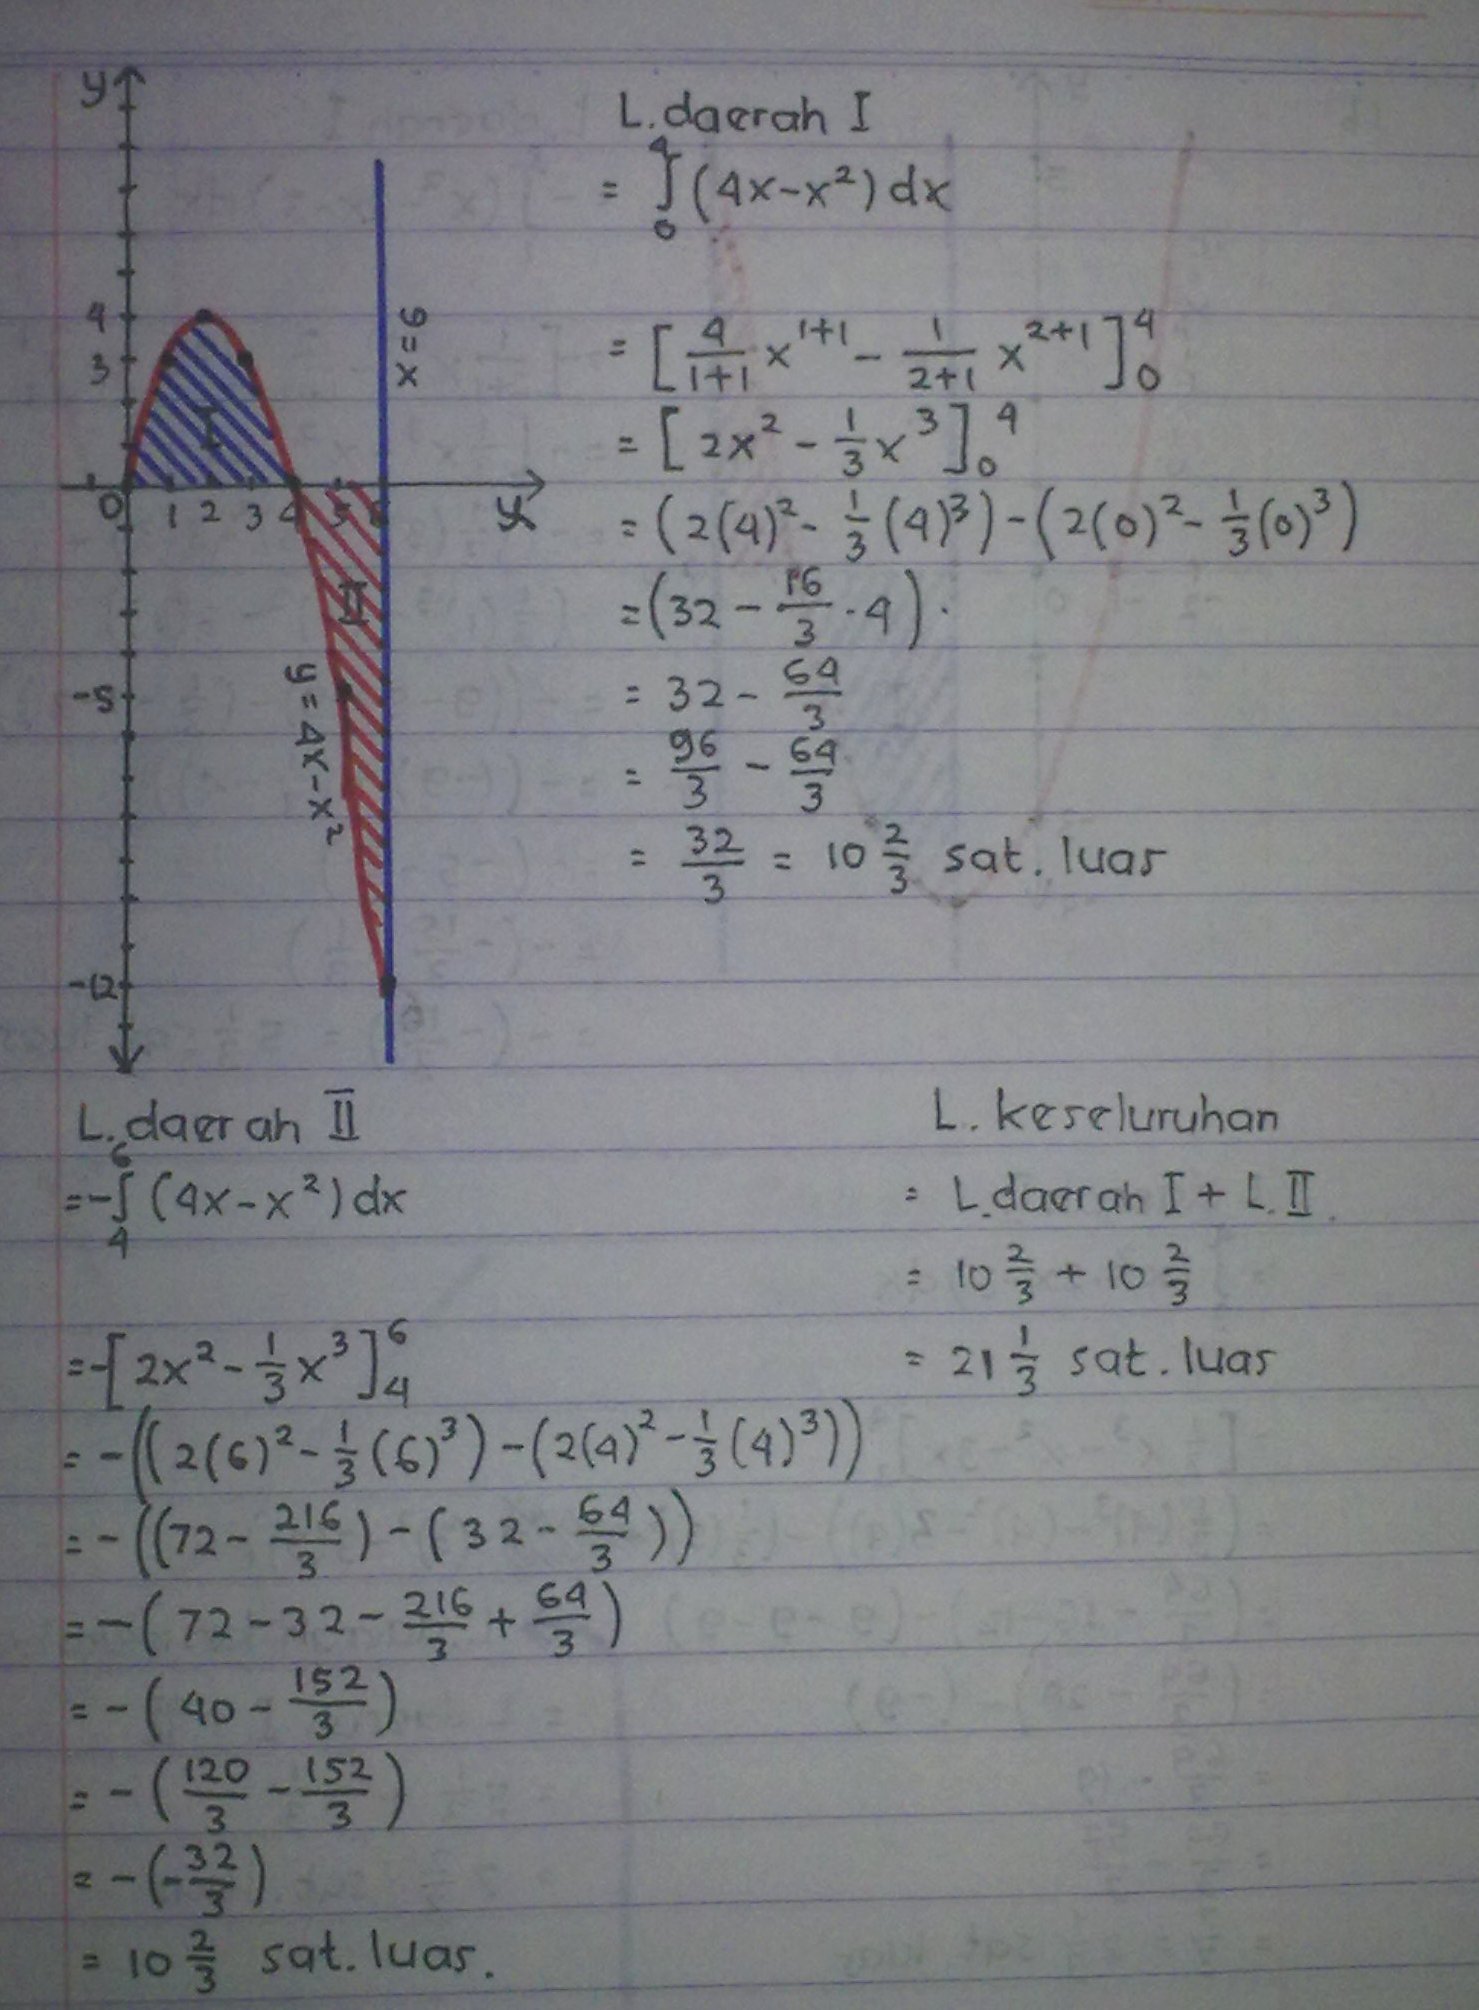 y
L. daerah I
= ∫₀⁴ (4x-x²) dx
4
3
x = 6
I
= [4/(1+1) x¹⁺¹ - 1/(2+1) x²⁺¹]₀⁴
= [2x² - 1/3 x³]₀⁴
0 1 2 3 4 5 6 x
= (2(4)² - 1/3 (4)³) - (2(0)² - 1/3 (0)³)
II
= (32 - 16/3 · 4)
-5
y = 4x-x²
= 32 - 64/3
= 96/3 - 64/3
= 32/3 = 10 2/3 sat. luas
-12
L. daerah II
= -∫₄⁶ (4x-x²) dx
= -[2x² - 1/3 x³]₄⁶
= -((2(6)² - 1/3 (6)³) - (2(4)² - 1/3 (4)³))
= -((72 - 216/3) - (32 - 64/3))
= -(72 - 32 - 216/3 + 64/3)
= -(40 - 152/3)
= -(120/3 - 152/3)
= -(-32/3)
= 10 2/3 sat. luas.
L. keseluruhan
= L. daerah I + L. II.
= 10 2/3 + 10 2/3
= 21 1/3 sat. luas